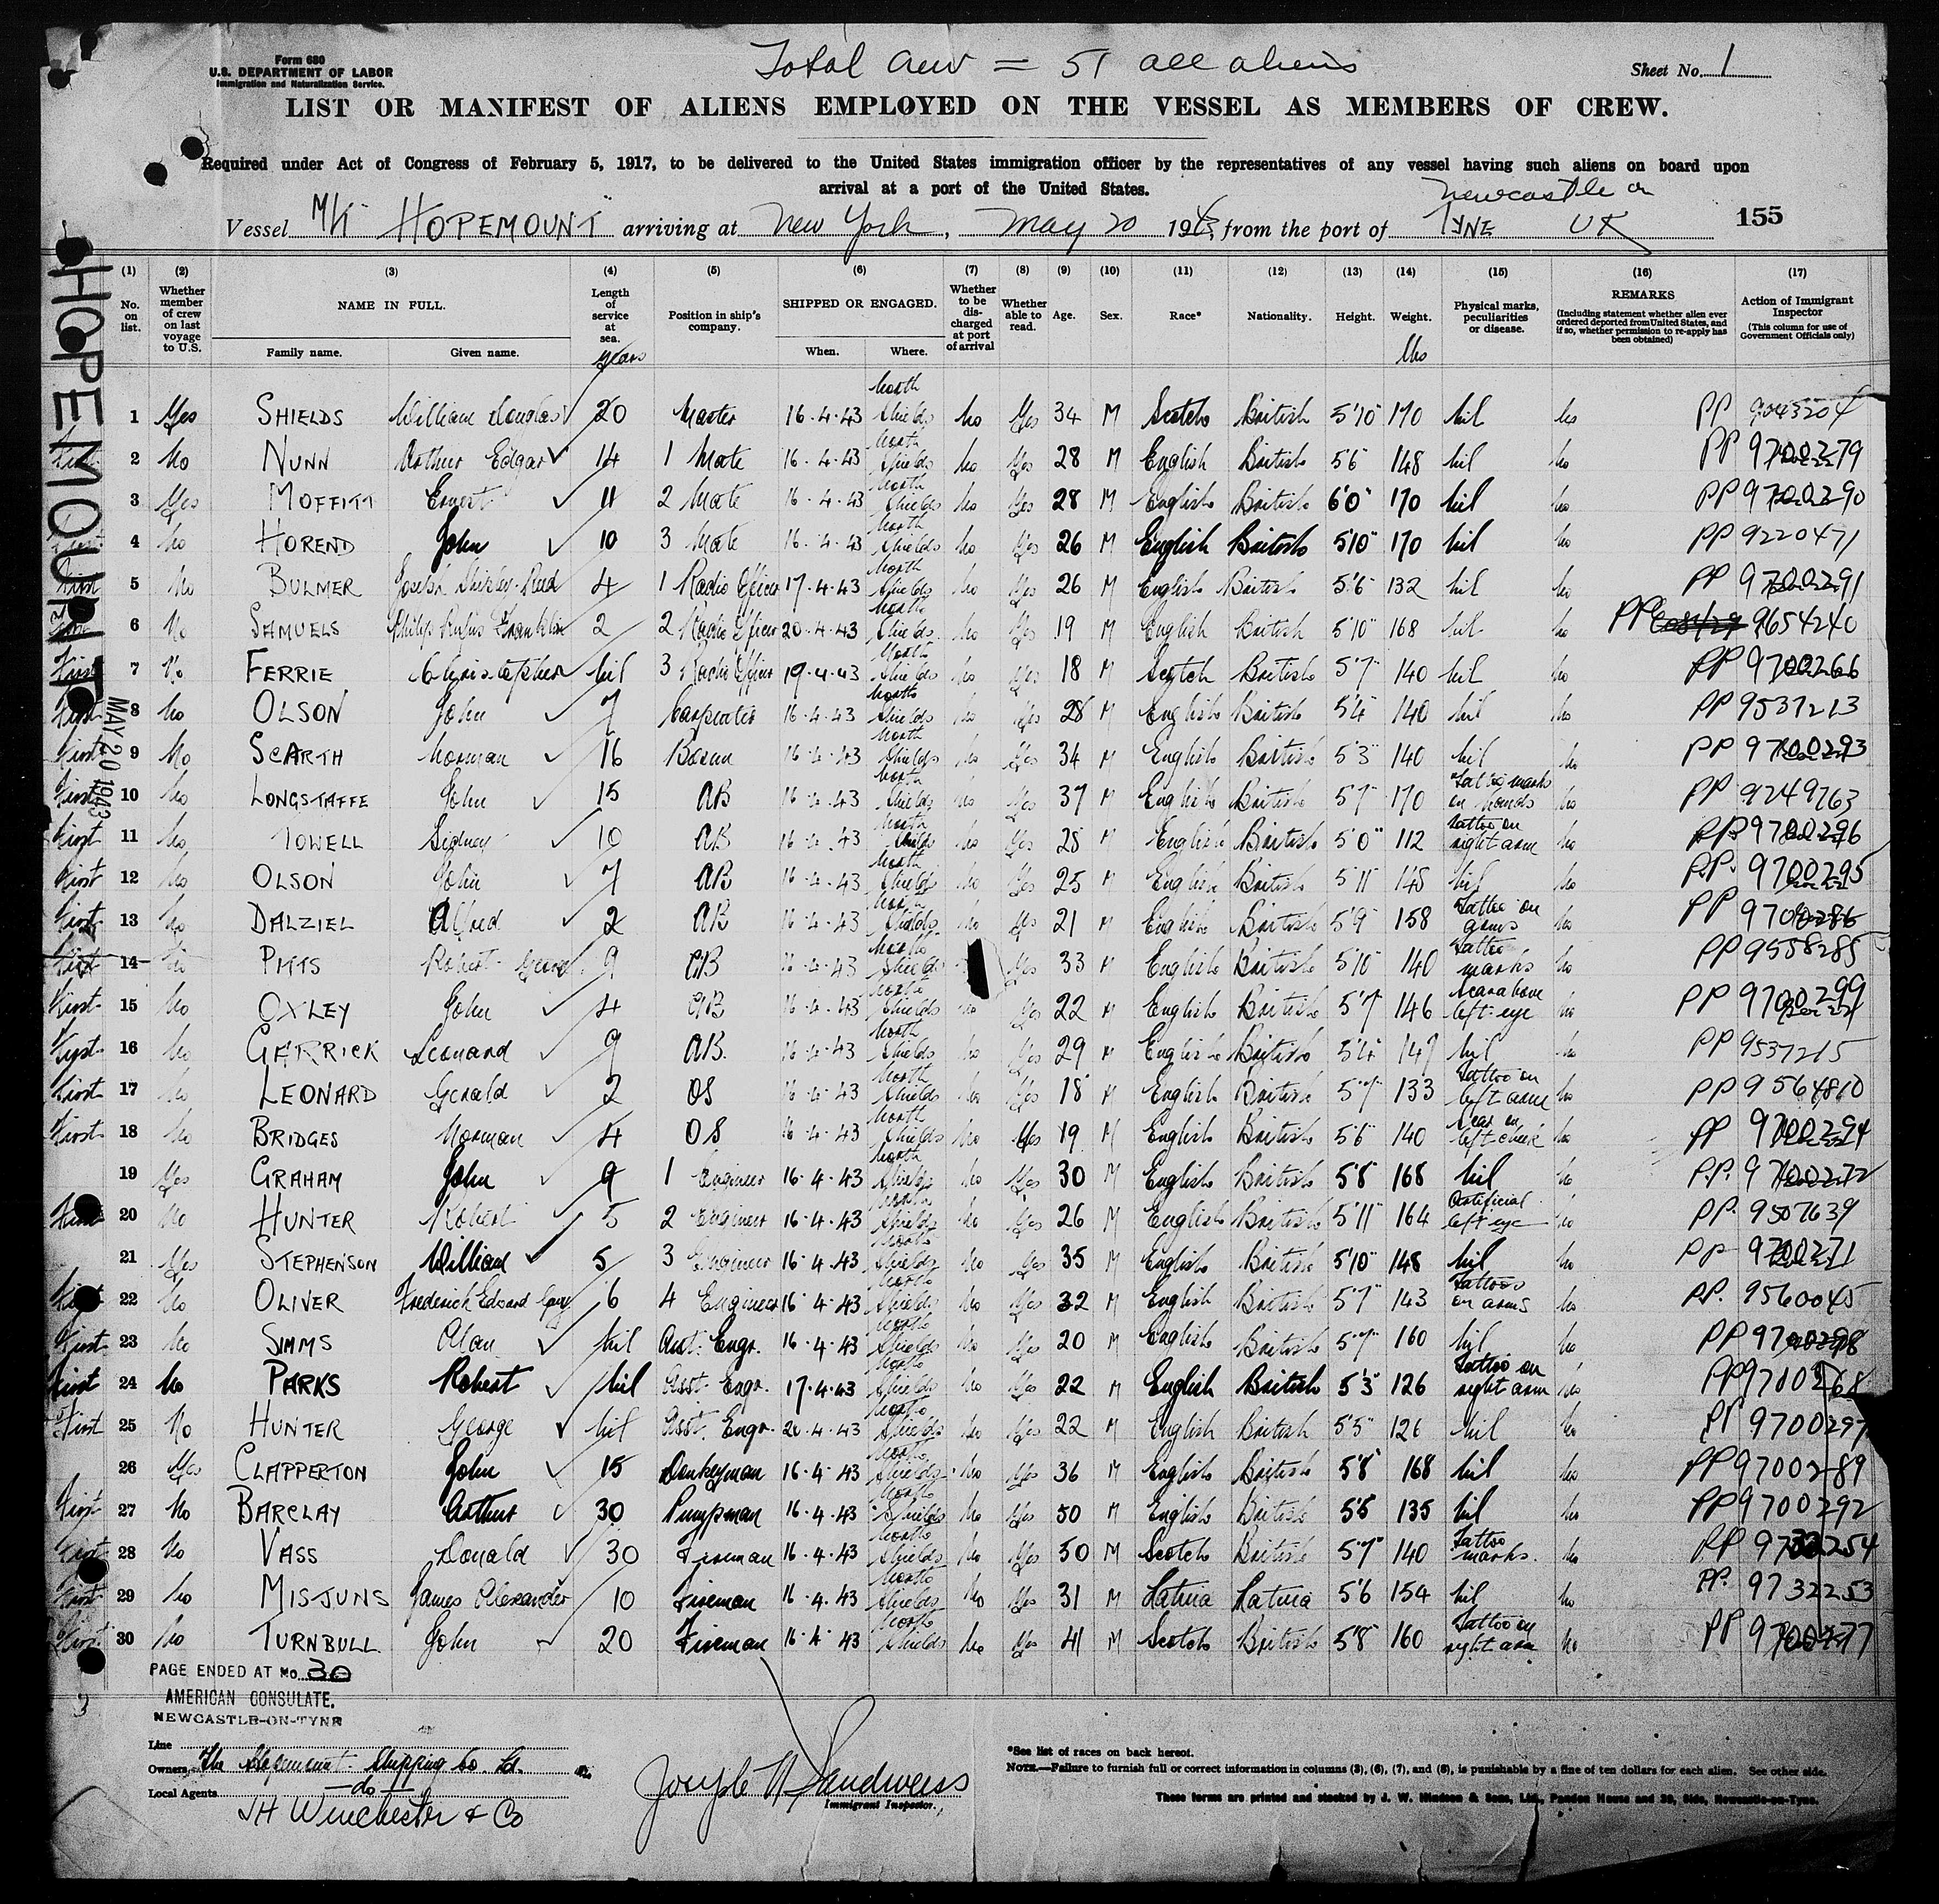 Total Crew = 51 all aliens
Form 680
U.S. DEPARTMENT OF LABOR
Immigration and Naturalization Service.
Sheet No. 1
LIST OR MANIFEST OF ALIENS EMPLOYED ON THE VESSEL AS MEMBERS OF CREW.
Required under Act of Congress of February 5, 1917, to be delivered to the United States immigration officer by the representatives of any vessel having such aliens on board upon
arrival at a port of the United States.
Newcastle on
Vessel HOPEMOUNT arriving at New York, May 20 1943, from the port of TYNE UK 155
HOPEMOUNT
MAY 20 1943
(1) No. on list. (2) Whether member of crew on last voyage to U.S. (3) NAME IN FULL. Family name. Given name. (4) Length of service at sea. years (5) Position in ship's company. (6) SHIPPED OR ENGAGED. When. Where. (7) Whether to be discharged at port of arrival (8) Whether able to read. (9) Age. (10) Sex. (11) Race* (12) Nationality. (13) Height. (14) Weight. lbs (15) Physical marks, peculiarities or disease. (16) REMARKS (Including statement whether alien ever ordered deported from United States, and if so, whether permission to re-apply has been obtained) (17) Action of Immigrant Inspector (This column for use of Government Officials only)
1 Yes SHIELDS William Douglas 20 Master 16-4-43 North Shields No Yes 34 M Scotch British 5'10" 170 Nil No PP 9043204
First 2 No NUNN Arthur Edgar 14 1 Mate 16-4-43 North Shields No Yes 28 M English British 5'6" 148 Nil No PP 9700279
3 Yes MOFFITT Ernest 11 2 Mate 16-4-43 North Shields No Yes 28 M English British 6'0" 170 Nil No PP 9700290
4 No HOREND John 10 3 Mate 16-4-43 North Shields No Yes 26 M English British 5'10" 170 Nil No PP 9220471
First 5 No BULMER Joseph 4 1 Radio Officer 17-4-43 North Shields No Yes 26 M English British 5'6" 132 Nil No PP 9700291
First 6 No SAMUELS Philip Rufus Franklin 2 2 Radio Officer 20-4-43 North Shields No Yes 19 M English British 5'10" 168 Nil No PP 9654240
First 7 No FERRIE Christopher Nil 3 Radio Officer 19-4-43 North Shields No Yes 18 M Scotch British 5'7" 140 Nil No PP 9700266
First 8 No OLSON John 7 Carpenter 16-4-43 North Shields No Yes 28 M English British 5'4" 140 Nil No PP 9537213
First 9 No SCARTH Norman 16 Bosun 16-4-43 North Shields No Yes 34 M English British 5'3" 140 Nil No PP 9700293
First 10 No LONGSTAFFE John 15 AB 16-4-43 North Shields No Yes 37 M English British 5'7" 170 Tattoo marks on hands No PP 9249763
First 11 No TOWELL Sidney 10 AB 16-4-43 North Shields No Yes 28 M English British 5'0" 112 Tattoo on right arm No PP 9700296
First 12 No OLSON John 7 AB 16-4-43 North Shields No Yes 25 M English British 5'11" 148 Nil No P.P. 9700295
First 13 No DALZIEL Alfred 2 AB 16-4-43 North Shields No Yes 21 M English British 5'9" 158 Tattoo on arms No PP 9700286
First 14 No PITTS Robert George 9 AB 16-4-43 North Shields Yes 33 M English British 5'10" 140 Tattoo marks No PP 9558285
First 15 No OXLEY John 4 AB 16-4-43 North Shields No Yes 22 M English British 5'7" 146 Scar above left eye No PP 9700299
First 16 No GERRICK Leonard 9 AB. 16-4-43 North Shields No Yes 29 M English British 5'4" 147 Nil No PP 9537215
First 17 No LEONARD Gerald 2 OS 16-4-43 North Shields No Yes 18 M English British 5'7" 133 Tattoo on left arm No PP 9564810
First 18 No BRIDGES Norman 4 OS 16-4-43 North Shields No Yes 19 M English British 5'6" 140 Scar on left cheek No PP 9700294
19 Yes GRAHAM John 9 1 Engineer 16-4-43 North Shields No Yes 30 M English British 5'8" 168 Nil No P.P. 9700272
First 20 No HUNTER Robert 5 2 Engineer 16-4-43 North Shields No Yes 26 M English British 5'11" 164 Artificial left eye No PP. 9507639
21 Yes STEPHENSON William 5 3 Engineer 16-4-43 North Shields No Yes 35 M English British 5'10" 148 Nil No PP 9700271
First 22 No OLIVER Frederick Edward Guy 6 4 Engineer 16-4-43 North Shields No Yes 32 M English British 5'7" 143 Tattoos on arms No P.P. 9560045
First 23 No SIMMS Alan Nil Asst. Engr. 16-4-43 North Shields No Yes 20 M English British 5'7" 160 Nil No PP 9700298
First 24 No PARKS Robert Nil Asst. Engr. 17-4-43 North Shields No Yes 22 M English British 5'3" 126 Tattoo on right arm No PP 9700268
First 25 No HUNTER George Nil Asst. Engr. 20-4-43 North Shields No Yes 22 M English British 5'5" 126 Nil No PP 9700297
26 Yes CLAPPERTON John 15 Donkeyman 16-4-43 North Shields No Yes 36 M English British 5'8" 168 Nil No PP 9700289
First 27 No BARCLAY Arthur 30 Pumpman 16-4-43 North Shields No Yes 50 M English British 5'5" 135 Nil No PP 9700292
First 28 No VASS Donald 30 Fireman 16-4-43 North Shields No Yes 50 M Scotch British 5'7" 140 Tattoo marks. No PP 9732254
First 29 No MISJUNS James Alexander 10 Fireman 16-4-43 North Shields No Yes 31 M Latvia Latvia 5'6 154 Nil No PP. 9732253
First 30 No TURNBULL John 20 Fireman 16-4-43 North Shields No Yes 41 M Scotch British 5'8" 160 Tattoo on right arm No PP 9700277
PAGE ENDED AT No. 30
AMERICAN CONSULATE.
NEWCASTLE-ON-TYNE
Line
Owners The Hopemount Shipping Co. Ld.
Local Agents —do—
JH Winchester & Co
Joseph N Sandweiss
Immigrant Inspector.
*See list of races on back hereof.
NOTE.—Failure to furnish full or correct information in columns (3), (6), (7), and (8), is punishable by a fine of ten dollars for each alien. See other side.
These forms are printed and stocked by J. W. Hindson & Sons, Ltd., Pandon House and 32, Side, Newcastle-on-Tyne.